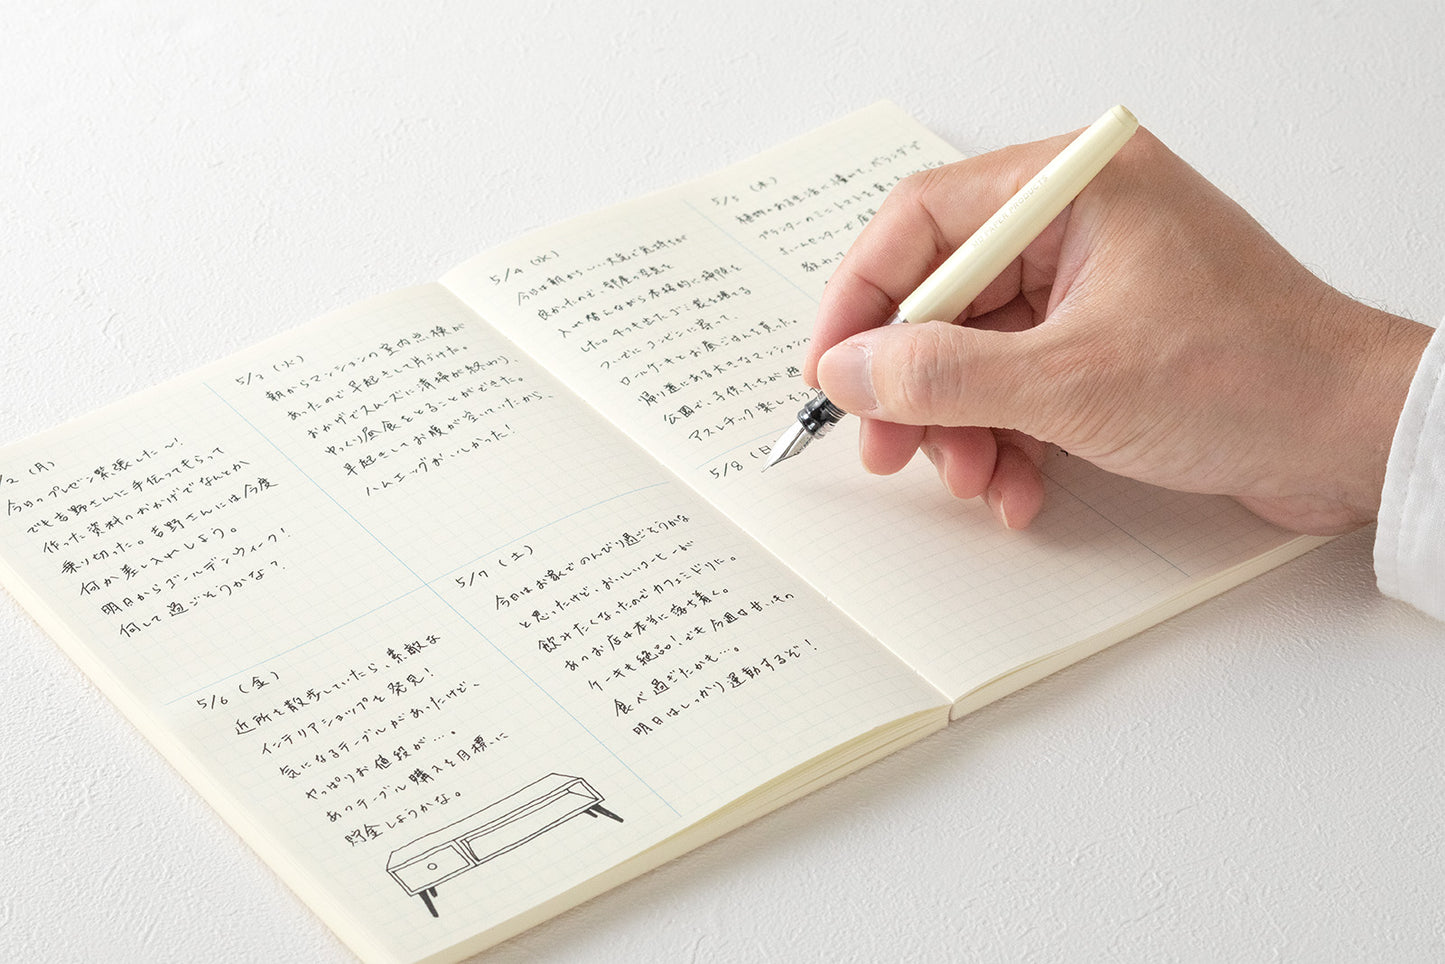 /2 (月)
今日のプレゼン緊張した〜!
でも吉野さんに手伝ってもらって
作った資料のおかげでなんとか
乗り切った。吉野さんには今度
何か差し入れしよう。
明日からゴールデンウィーク!
何して過ごそうかな?
5/3 (火)
朝からマンションの室内点検が
あったので早起きして片づけた。
おかげでスムーズに清掃が終わり、
ゆっくり昼食をとることができた。
早起きしてお腹が空いていたから、
ハムエッグおいしかった!
5/4 (水)
今日は朝からいい天気で気持ちが
良かったので、部屋の空気を
入れ替えながら本格的に掃除を
した。4つも出たゴミ袋を捨てる
ついでにコンビニに寄って、
ロールケーキとお昼ごはんを買った。
帰り道にある大きなマンションの
公園で、子供たちが遊
アスレチック楽しそう
5/5 (木)
植物のある生活に憧れて、ベランダで
プランターのミニトマトを育
ホームセンターで店
教わって
5/6 (金)
近所を散歩していたら、素敵な
インテリアショップを発見!
気になるテーブルがあったけど、
やっぱりお値段が…。
あのテーブル購入を目標に
貯金しようかな。
5/7 (土)
今日はお家でのんびり過ごそうかな
と思ったけど、おいしいコーヒーが
飲みたくなったのでカフェミドリに。
あのお店は本当に落ち着く。
ケーキも絶品!でも今週は甘いもの
食べ過ぎたかも…。
明日はしっかり運動するぞ!
5/8 (日
MD PAPER PRODUCTS